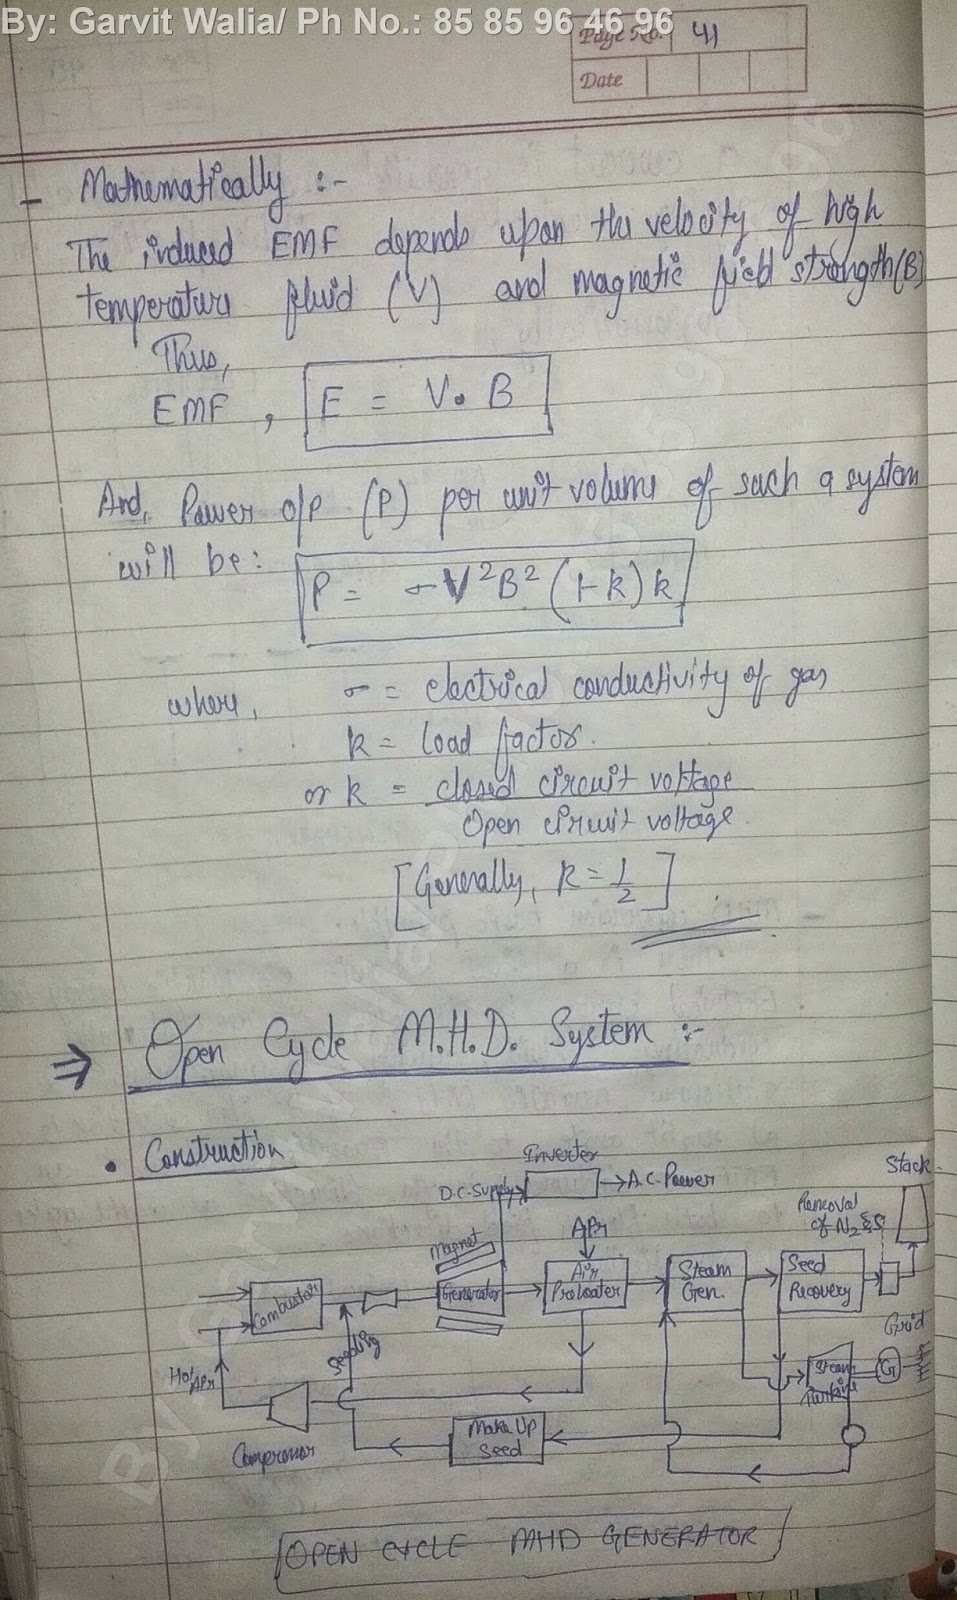 By: Garvit Walia/ Ph No.: 85 85 96 46 96
Page No. 41
Date
- Mathematically :-
The induced EMF depends upon the velocity of high
temperature fluid (V) and magnetic field strength (B)
Thus,
EMF , E = V . B
And, Power o/p (P) per unit volume of such a system
will be: P = σV²B² (1-k) k
where, σ = electrical conductivity of gas
k = load factor.
or k = closed circuit voltage
Open circuit voltage
[Generally, k = 1/2]
⇒ Open Cycle M.H.D. System :-
• Construction
Inverter
D.C. Supply → A.C. Power
Stack
Removal
of N2 & S
Magnet
Air
Combustor
Generator
Air
Preheater
Steam
Gen.
Seed
Recovery
Seeding
Grid
Hot
Air
Steam
Turbine
G
Compressor
Make Up
Seed
OPEN CYCLE MHD GENERATOR